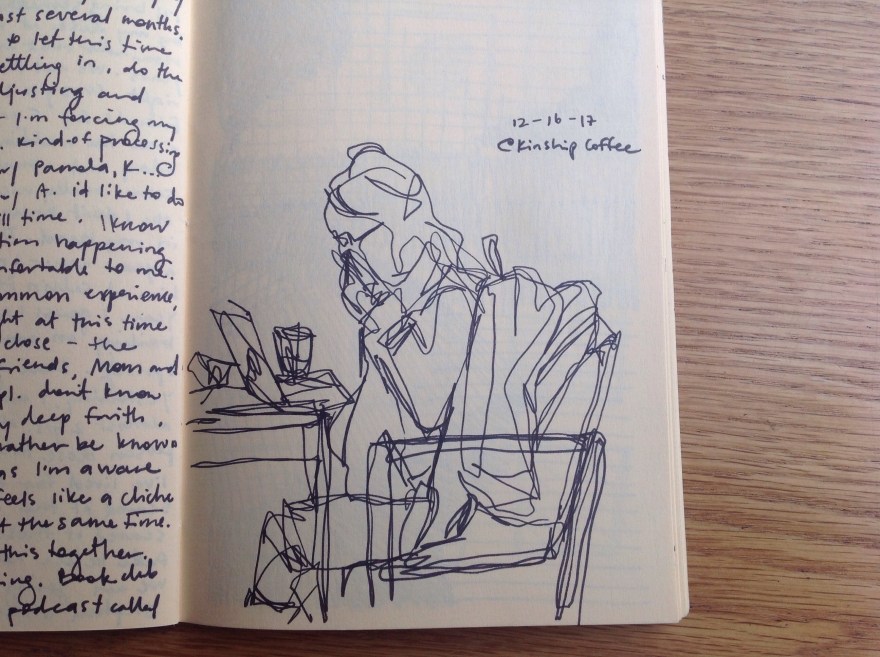 ast several months.
to let this time
ettling in, do the
djusting and
I'm forcing my
. Kind of processing
w/ Pamela, K...C
w/ A. i'd like to do
ill time. I know
tion happening
mfortable to me.
mmon experience,
ht at this time
close - the
riends, Mom and
pl. don't know
y deep faith.
rather be known
as I'm aware
feels like a cliche
t the same time.
this together.
ing. Book club
podcast called
12-16-17
@Kinship Coffee